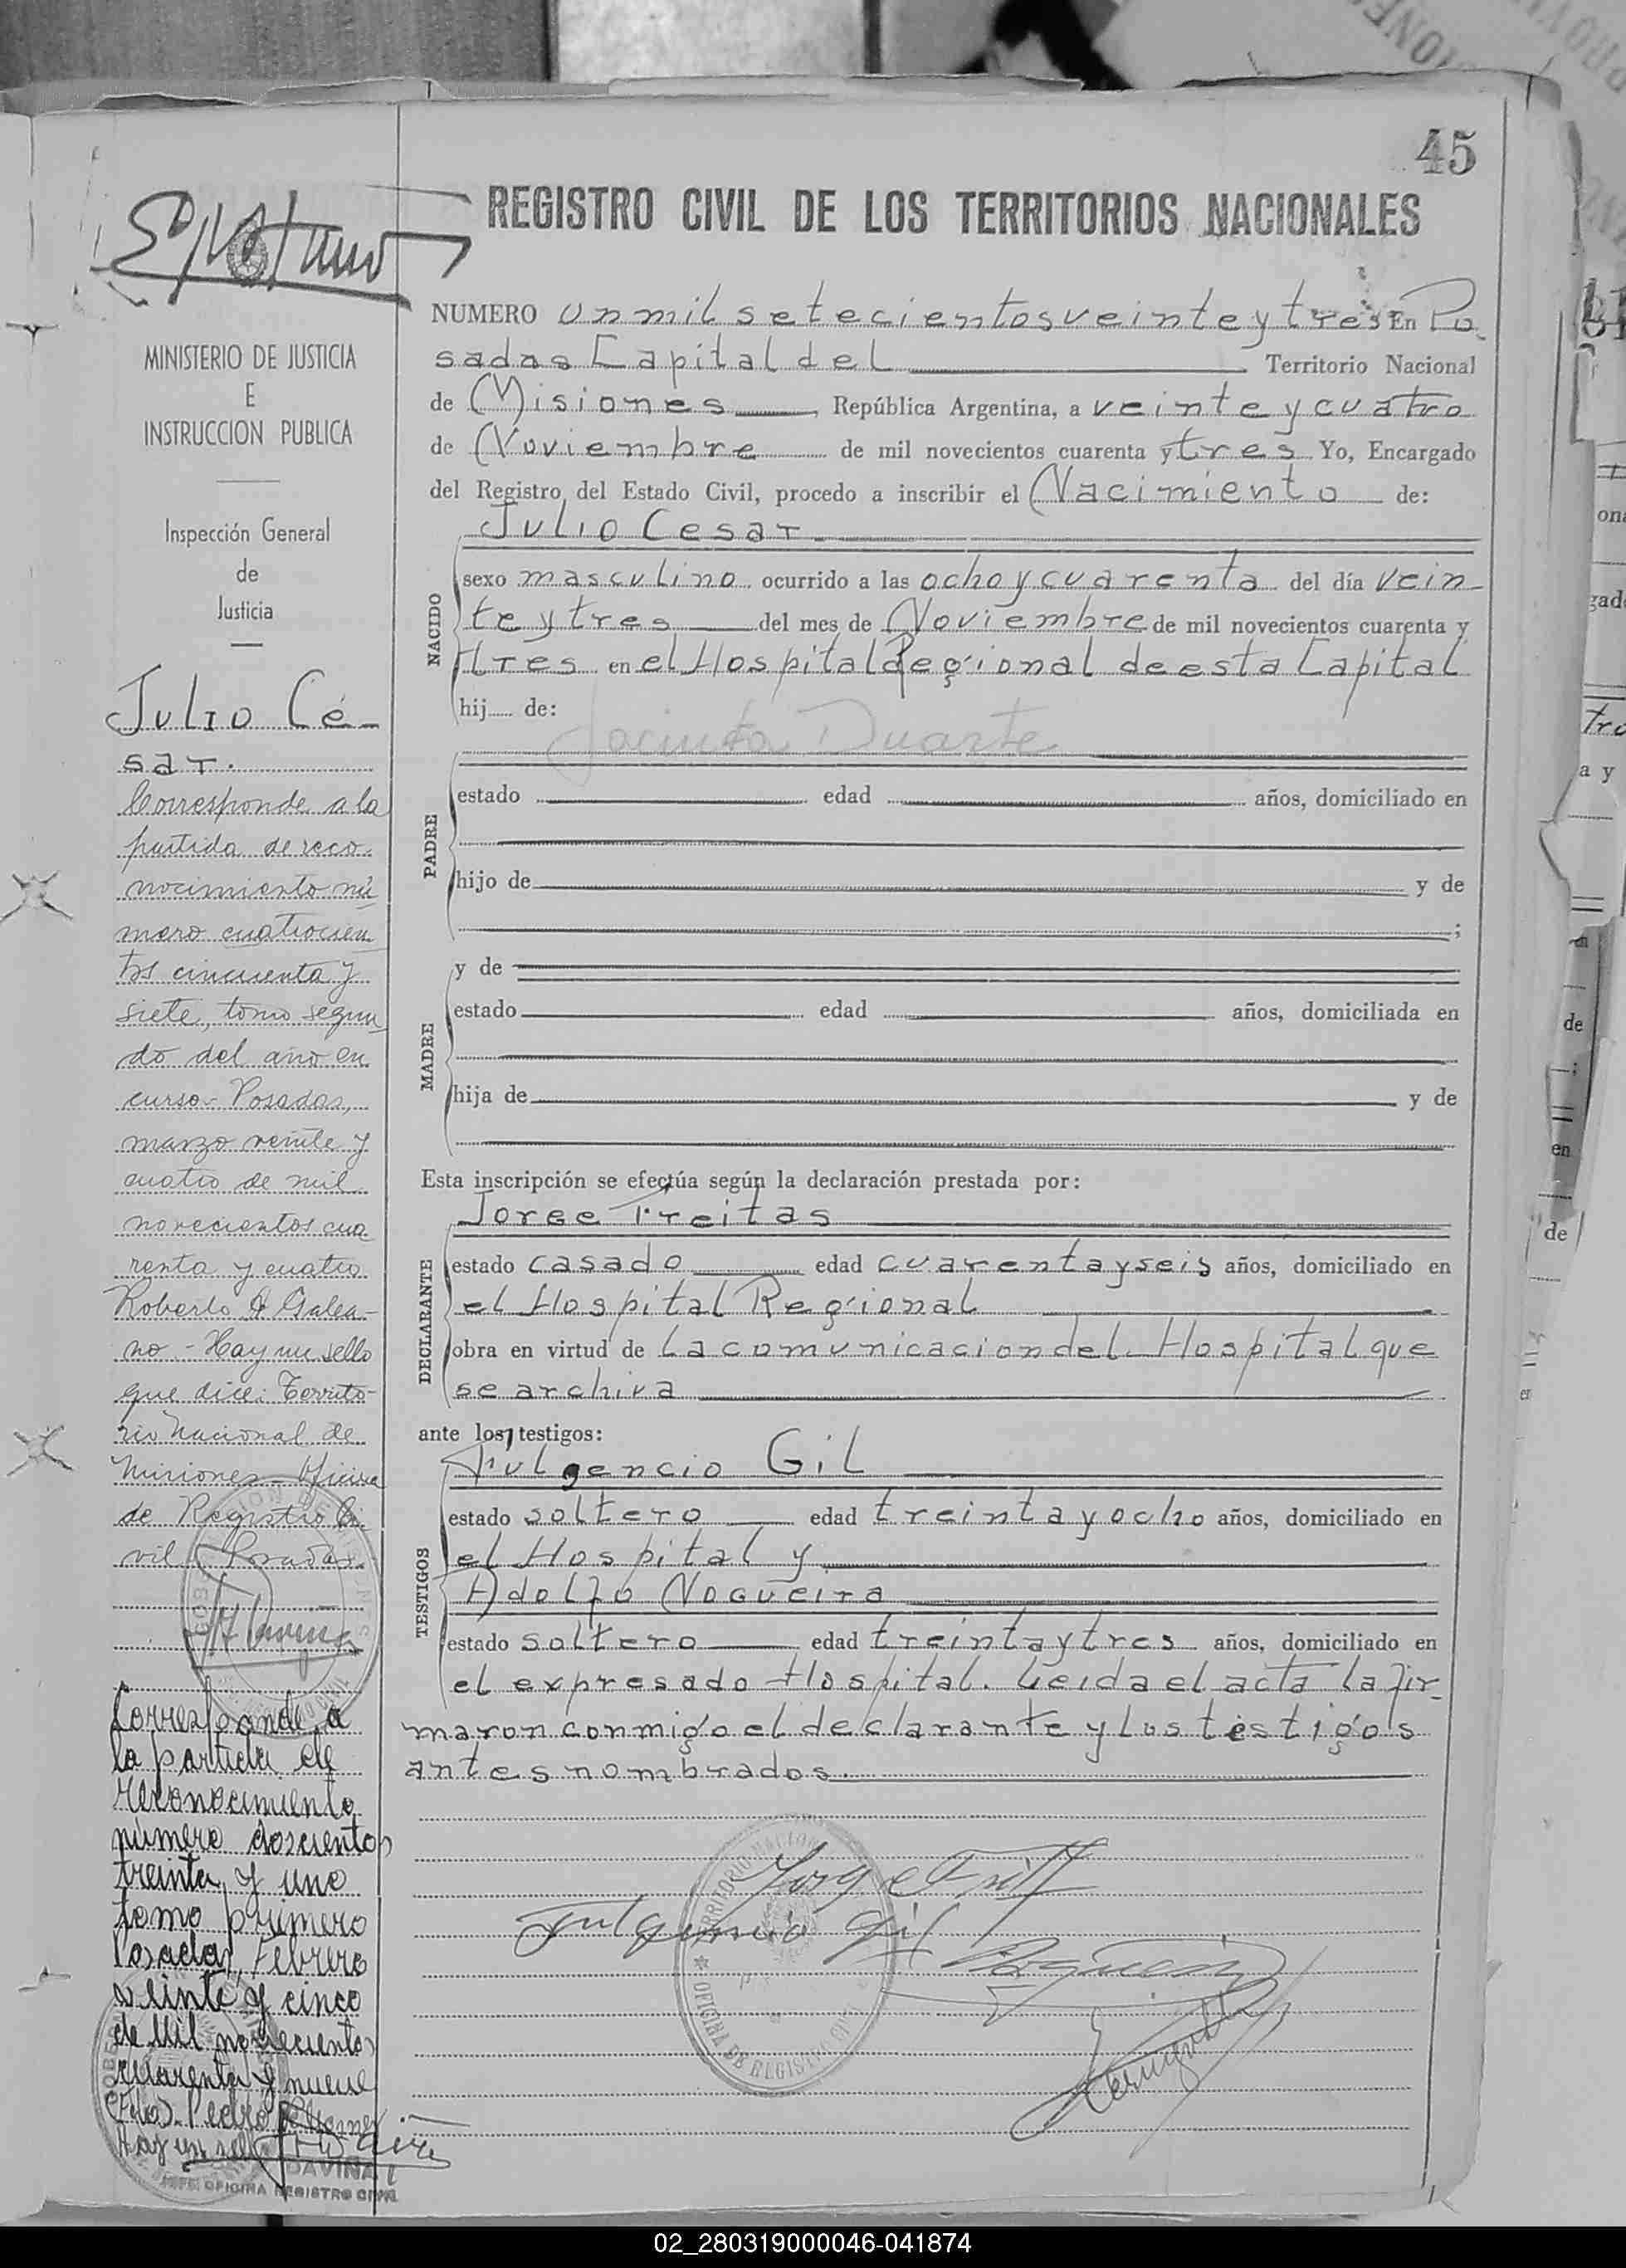 45
REGISTRO CIVIL DE LOS TERRITORIOS NACIONALES
MINISTERIO DE JUSTICIA
E
INSTRUCCION PUBLICA
Inspección General
de
Justicia
Julio Cé-
sar.
Corresponde a la
partida de reco-
nocimiento nú
mero cuatrocien
tos cincuenta y
siete, tomo segun
do del año en
curso - Posadas,
marzo veinte y
cuatro de mil
novecientos cua
renta y cuatro
Roberto Galea-
no - Hay un sello
que dice: Territo-
rio Nacional de
Misiones - Oficina
de Registro Ci
vil Posadas
Corresponde a
la partida de
reconocimiento
número doscientos
treinta y uno
tomo primero
Posadas, Febrero
veinte y cinco
de Mil novecientos
cuarenta y nueve
Pedro
Hay un sello
DAVIÑA
JEFE OFICINA REGISTRO CIVIL
NUMERO un mil setecientos veinte y tres En Po-
sadas Capital del Territorio Nacional
de Misiones, República Argentina, a veinte y cuatro
de Noviembre de mil novecientos cuarenta y tres Yo, Encargado
del Registro del Estado Civil, procedo a inscribir el Nacimiento de:
Julio Cesar
NACIDO
sexo masculino ocurrido a las ocho y cuarenta del día vein-
te y tres del mes de Noviembre de mil novecientos cuarenta y
tres en el Hospital Regional de esta Capital
hij de:
Jacinta Duarte
PADRE
estado edad años, domiciliado en
hijo de y de
;
MADRE
y de
estado edad años, domiciliada en
hija de y de
Esta inscripción se efectúa según la declaración prestada por:
Jorge Freitas
DECLARANTE
estado casado edad cuarenta y seis años, domiciliado en
el Hospital Regional
obra en virtud de la comunicacion del Hospital que
se archiva
ante los testigos:
Fulgencio Gil
TESTIGOS
estado soltero edad treinta y ocho años, domiciliado en
el Hospital y
Adolfo Nogueira
estado soltero edad treinta y tres años, domiciliado en
el expresado Hospital. Leida el acta la fir-
maron conmigo el declarante y los testigos
antes nombrados.
Fulgencio Gil
OFICINA DE REGISTRO CIVIL
02_280319000046-041874